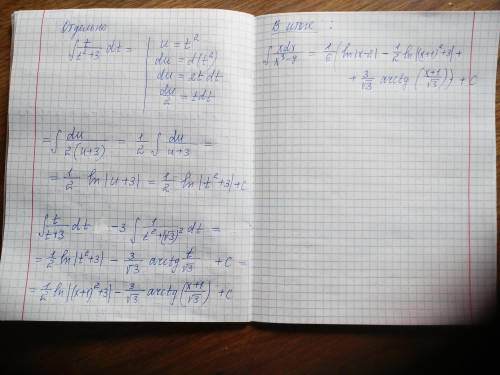 Отдельно
∫ t/(t²+3) dt = | u = t²
du = d(t²)
du = 2t dt
du/2 = t dt
= ∫ du/(2(u+3)) = 1/2 ∫ du/(u+3) =
= 1/2 ln|u+3| = 1/2 ln|t²+3|+C
∫ t/(t+3) dt - 3 ∫ 1/(t²+(√3)²) dt =
= 1/2 ln|t²+3| - 3/√3 arctg t/√3 + C =
= 1/2 ln|(x+1)²+3| - 3/√3 arctg (x+1/√3) + C
В итоге:
∫ xdx/(x³-8) = 1/6 (ln|x-2| - 1/2 ln|(x+1)²+3| +
+ 3/√3 arctg (x+1/√3)) + C